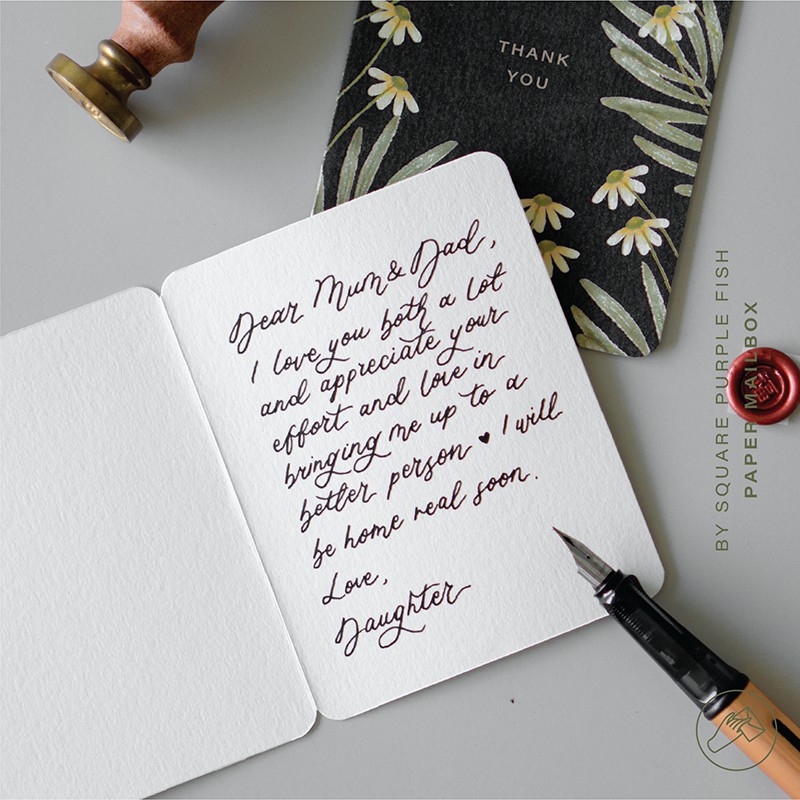 THANK
YOU
Dear Mum & Dad,
I love you both a lot
and appreciate your
effort and love in
bringing me up to a
better person ♥ I will
be home real soon.
Love,
Daughter
BY SQUARE PURPLE FISH
PAPER MAILBOX